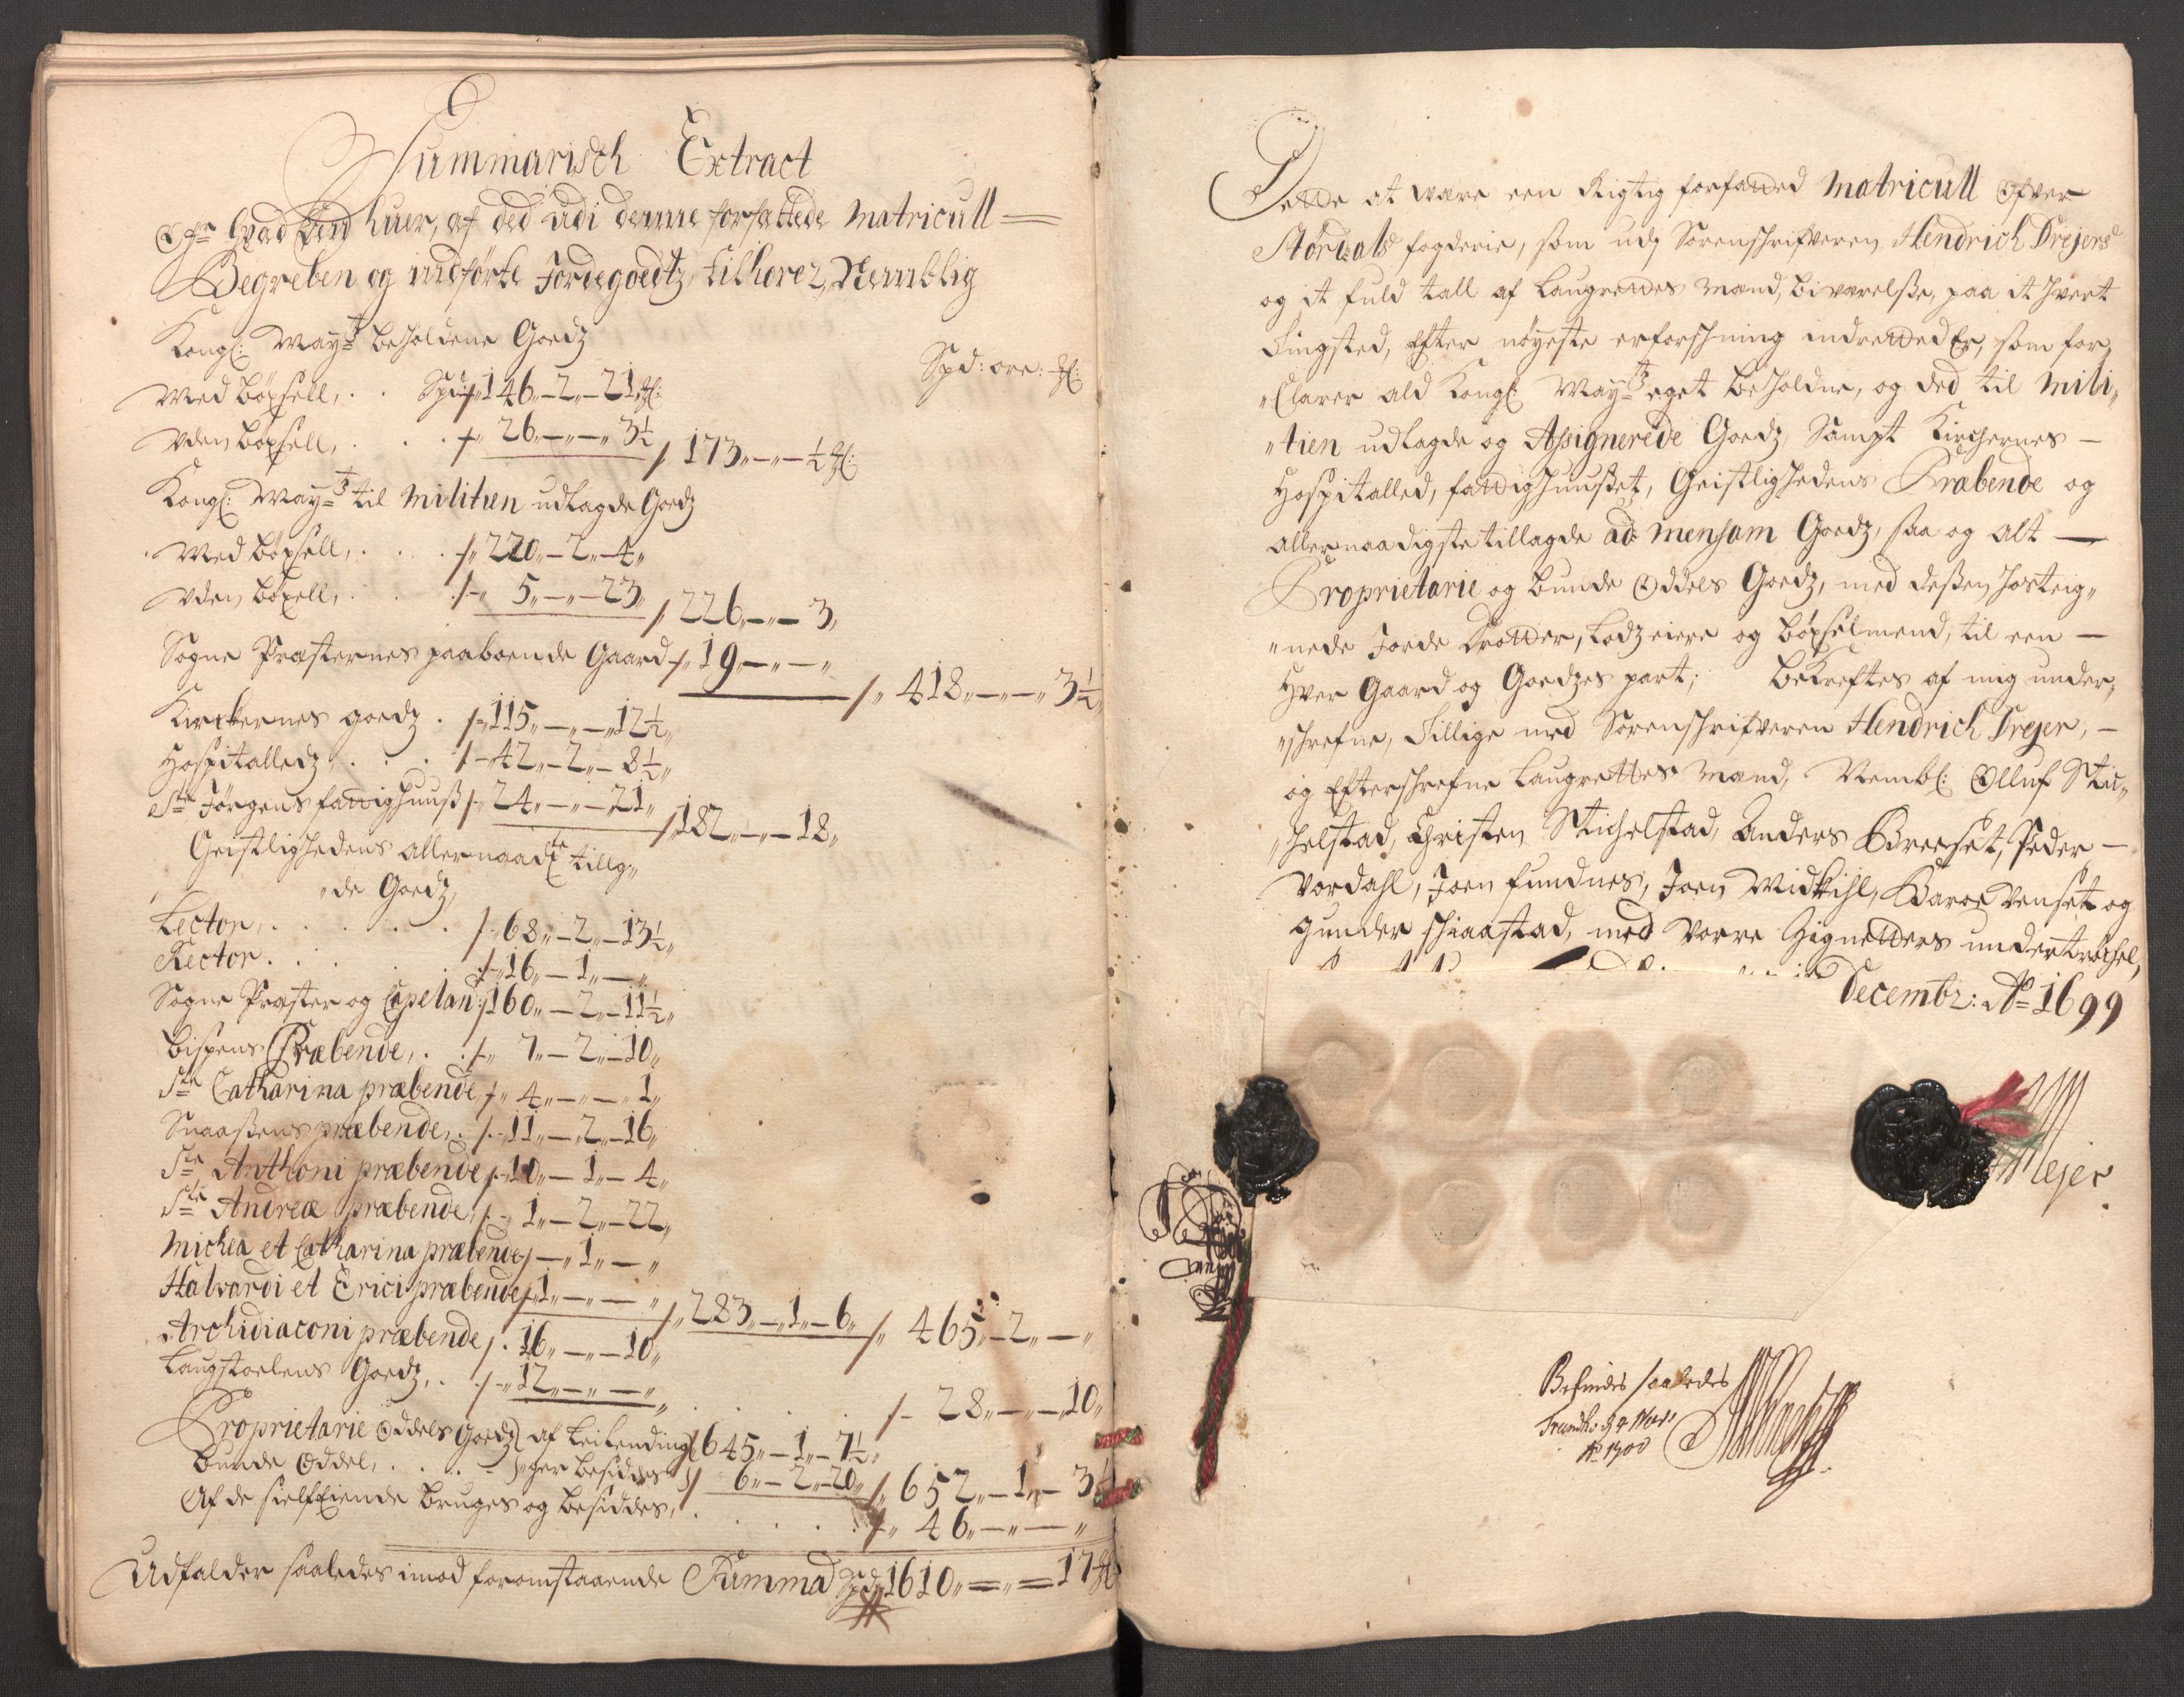 Summarisch Extract
Ofr hvad Enhuer, af ded udi denne forfattede Matricull
Begreben og indførte Jordegoedtz, tilhorer, Nemblig
Kongl: Mayts beholdene Goedz
Spd: ore: ℔:
Med böxsell, . . Spd 146 - 2 - 21 ℔:
Uden böxsell, . . . 26 - „ - 3½ / 173 - „ - ½ ℔:
Kongl: Mayts til Militien udlagde Goedz
Med böxsell, . . . 220 - 2 - 4
Uden böxell, . . . 5 - „ - 23 / 226 - „ - 3
Sogne Præsternes paaboende Gaard 19 - „ - „ / 418 - „ - 3½
Kirckernes goedz . 115 - „ - 12½
Hospitalledz, . . . 42 - 2 - 8½
Ste Jörgens fattighuuß 24 - „ - 21 / 182 - „ - 18
Geistlighedens allernaadte tillg„
„de Goedz,
Lector, . . . . . 68 - 2 - 13½
Rector . . . . . 16 - 1 - „
Sogne Præster og Capelan: 160 - 2 - 11½
Bispens Præbende, . . 7 - 2 - 10
Ste Catharina præbende, 4 - „ - 1
Snaaßens præbende, . 11 - 2 - 16
Ste Anthoni præbende, 10 - 1 - 4
Ste Andreæ præbende, 1 - 2 - 22
Michea et Catharina præbende, „ - 1 - „
Halvardi et Erici præbende, 1 - „ - „ / 283 - 1 - 6 / 465 - 2 - „
Archidiaconi præbende, 16 - „ - 10
Laugstoelens Goedz, . . 12 - „ - „ / 28 - „ - 10
Proprietarie Oddels Goedz af Leilending 645 - 1 - 7½
Bunde Oddel, . . . ger besiddes 6 - 2 - 20 / 652 - 1 - 3½
Af de sielfeiende bruges og besiddes, . . . . 46 - „ - „
Udfalder saaledes imod foromstaaende Summa Spd 1610 = „ = 17 ℔
Dette at være een Rigtig forfatted Matricull Ofver
Stördals fogderie, som udj Sorenschrifveren Hendrich Drejers
og it fuld tall af Laugrettes Mænd, biværelße, paa it hvert
Tingsted, Efter nöyeste erforschning indretted Er, som for„
„Clarer ald Kongl: Mayts eget beholdne, og ded til Mili„
„tien udlagde og Assignerede Goedz, Sampt Kirchernes –
Hospitalled, fattighuußet, Geistlighedens Præbende og
allernaadigste tillagde ad Mensam Goedz, saa og alt –
Proprietarie og bunde Oddels Goedz, med deßen hosteig„
„nede Jorde Drotter, Lodzeiere og böxselmend, til een –
Hver Gaard og Goedzes part; Bekreftes af mig under„
„schrefne, Tillige med Sorenschrifveren Hendrich Drejer, –
og Efterschrefne Laugrettes Mænd, Nembl: Olluf Stic„
„helstad, Christen Stichelstad, Anders Breeset, Peder –
Vordahl, Joen fundnes, Joen Midtkihl, Baroe Venset og
Gunder Schiaastad, med vorre Zignetters undertrochel,
Decembr: Ao 1699
Befindes saaledes
Trundh: d 4 Mars
Ao 1700